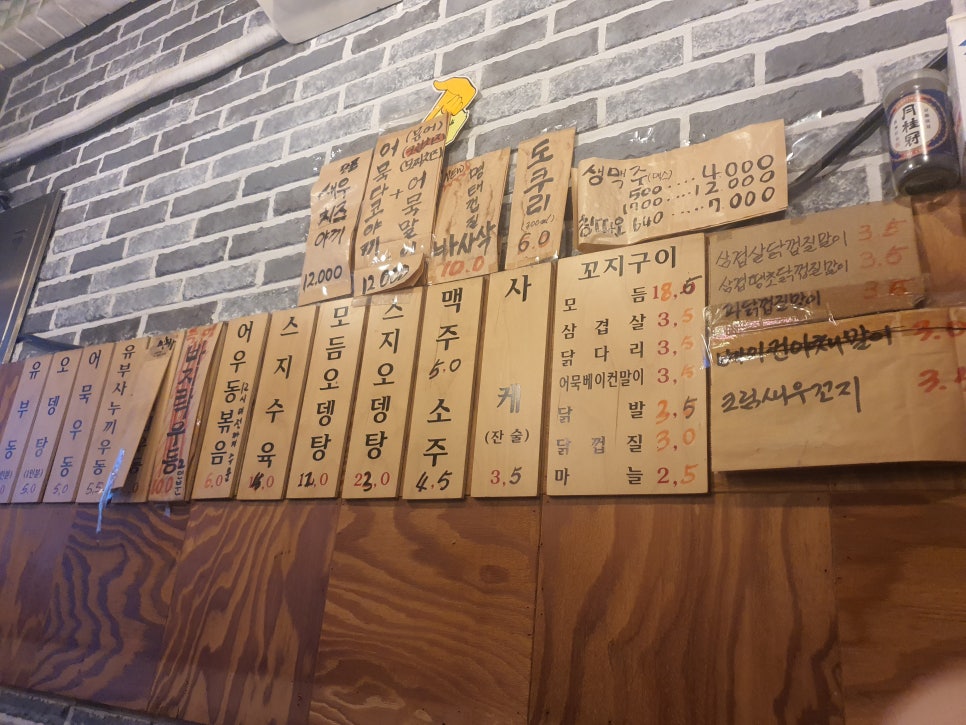 새우
치즈
12.000
(문어)
어묵타코야끼
+
어묵말이
12.000
명태껍질
바사삭
10.0
도쿠리
6.0
생맥주
500....4000
1700...12000
칭따오 640 7000
삼겹살닭껍질말이 3.5
삼겹땡초닭껍질말이 3.5
닭껍질말이
크림새우꼬지
꼬지구이
모듬 18,5
삼겹살 3,5
닭다리 3,5
어묵베이컨말이 3,5
닭발 3,5
닭껍질 3,0
마늘 2,5
사케
(잔술)
3,5
맥주 5.0
소주
4.5
스지오뎅탕
모듬오뎅탕
스지수육
어우동볶음
6.0
바지락우동
유부사누끼우동
5.5
어묵우동
5.0
오뎅탕
(1인분)
5.0
유부동